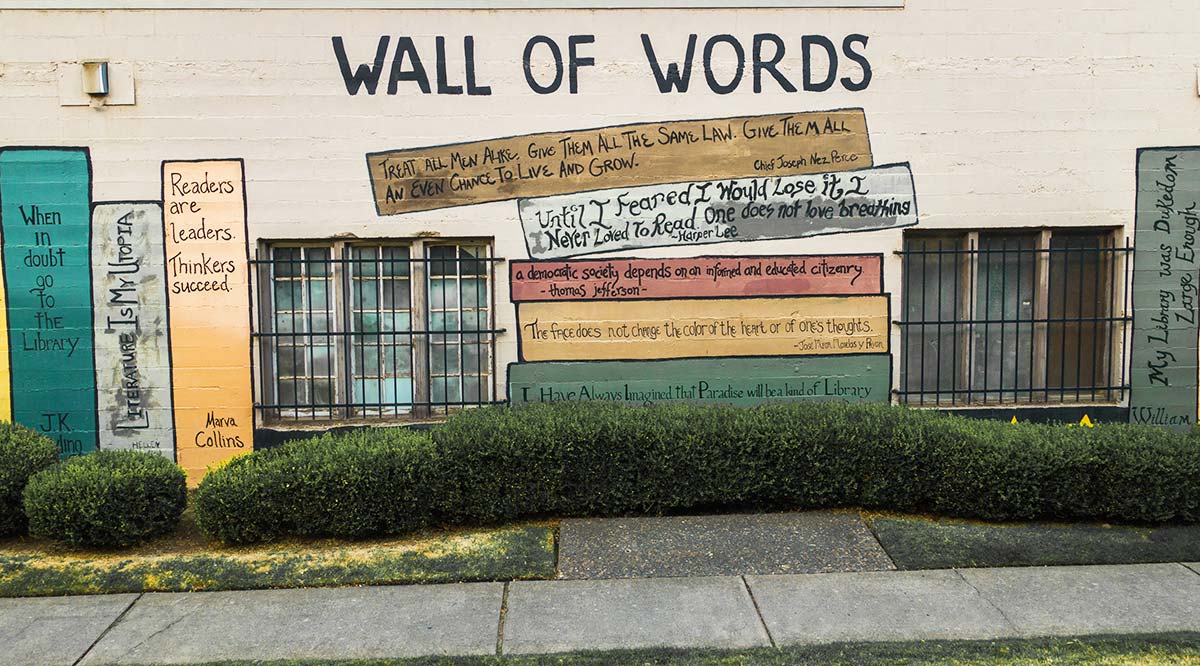 WALL OF WORDS
TREAT ALL MEN ALIKE. GIVE THEM ALL THE SAME LAW. GIVE THEM ALL
AN EVEN CHANCE TO LIVE AND GROW.
Chief Joseph Nez Perce
Until I Feared I Would Lose it, I
Never Loved To Read. One does not love breathing
~Harper Lee
a democratic society depends on an informed and educated citizenry.
- thomas jefferson -
The face does not change the color of the heart or of one's thoughts.
I Have Always Imagined that Paradise will be a kind of Library
When
in
doubt
go
to
the
Library
J.K.
Literature Is My Utopia
Readers
are
leaders.
Thinkers
succeed.
Marva
Collins
My Library was Dukedom
Large Enough
William